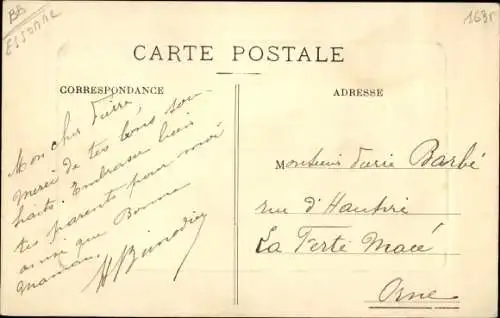 BB
ESSONNE
1635
CARTE POSTALE
CORRESPONDANCE
ADRESSE
Mon cher Pierre,
merci de tes bons sou-
haits. Embrasse bien
tes parents pour moi
ainsi que Bonne
Maman.
Monsieur Barbé
rue d'Hautvie
La Ferté Macé
Orne